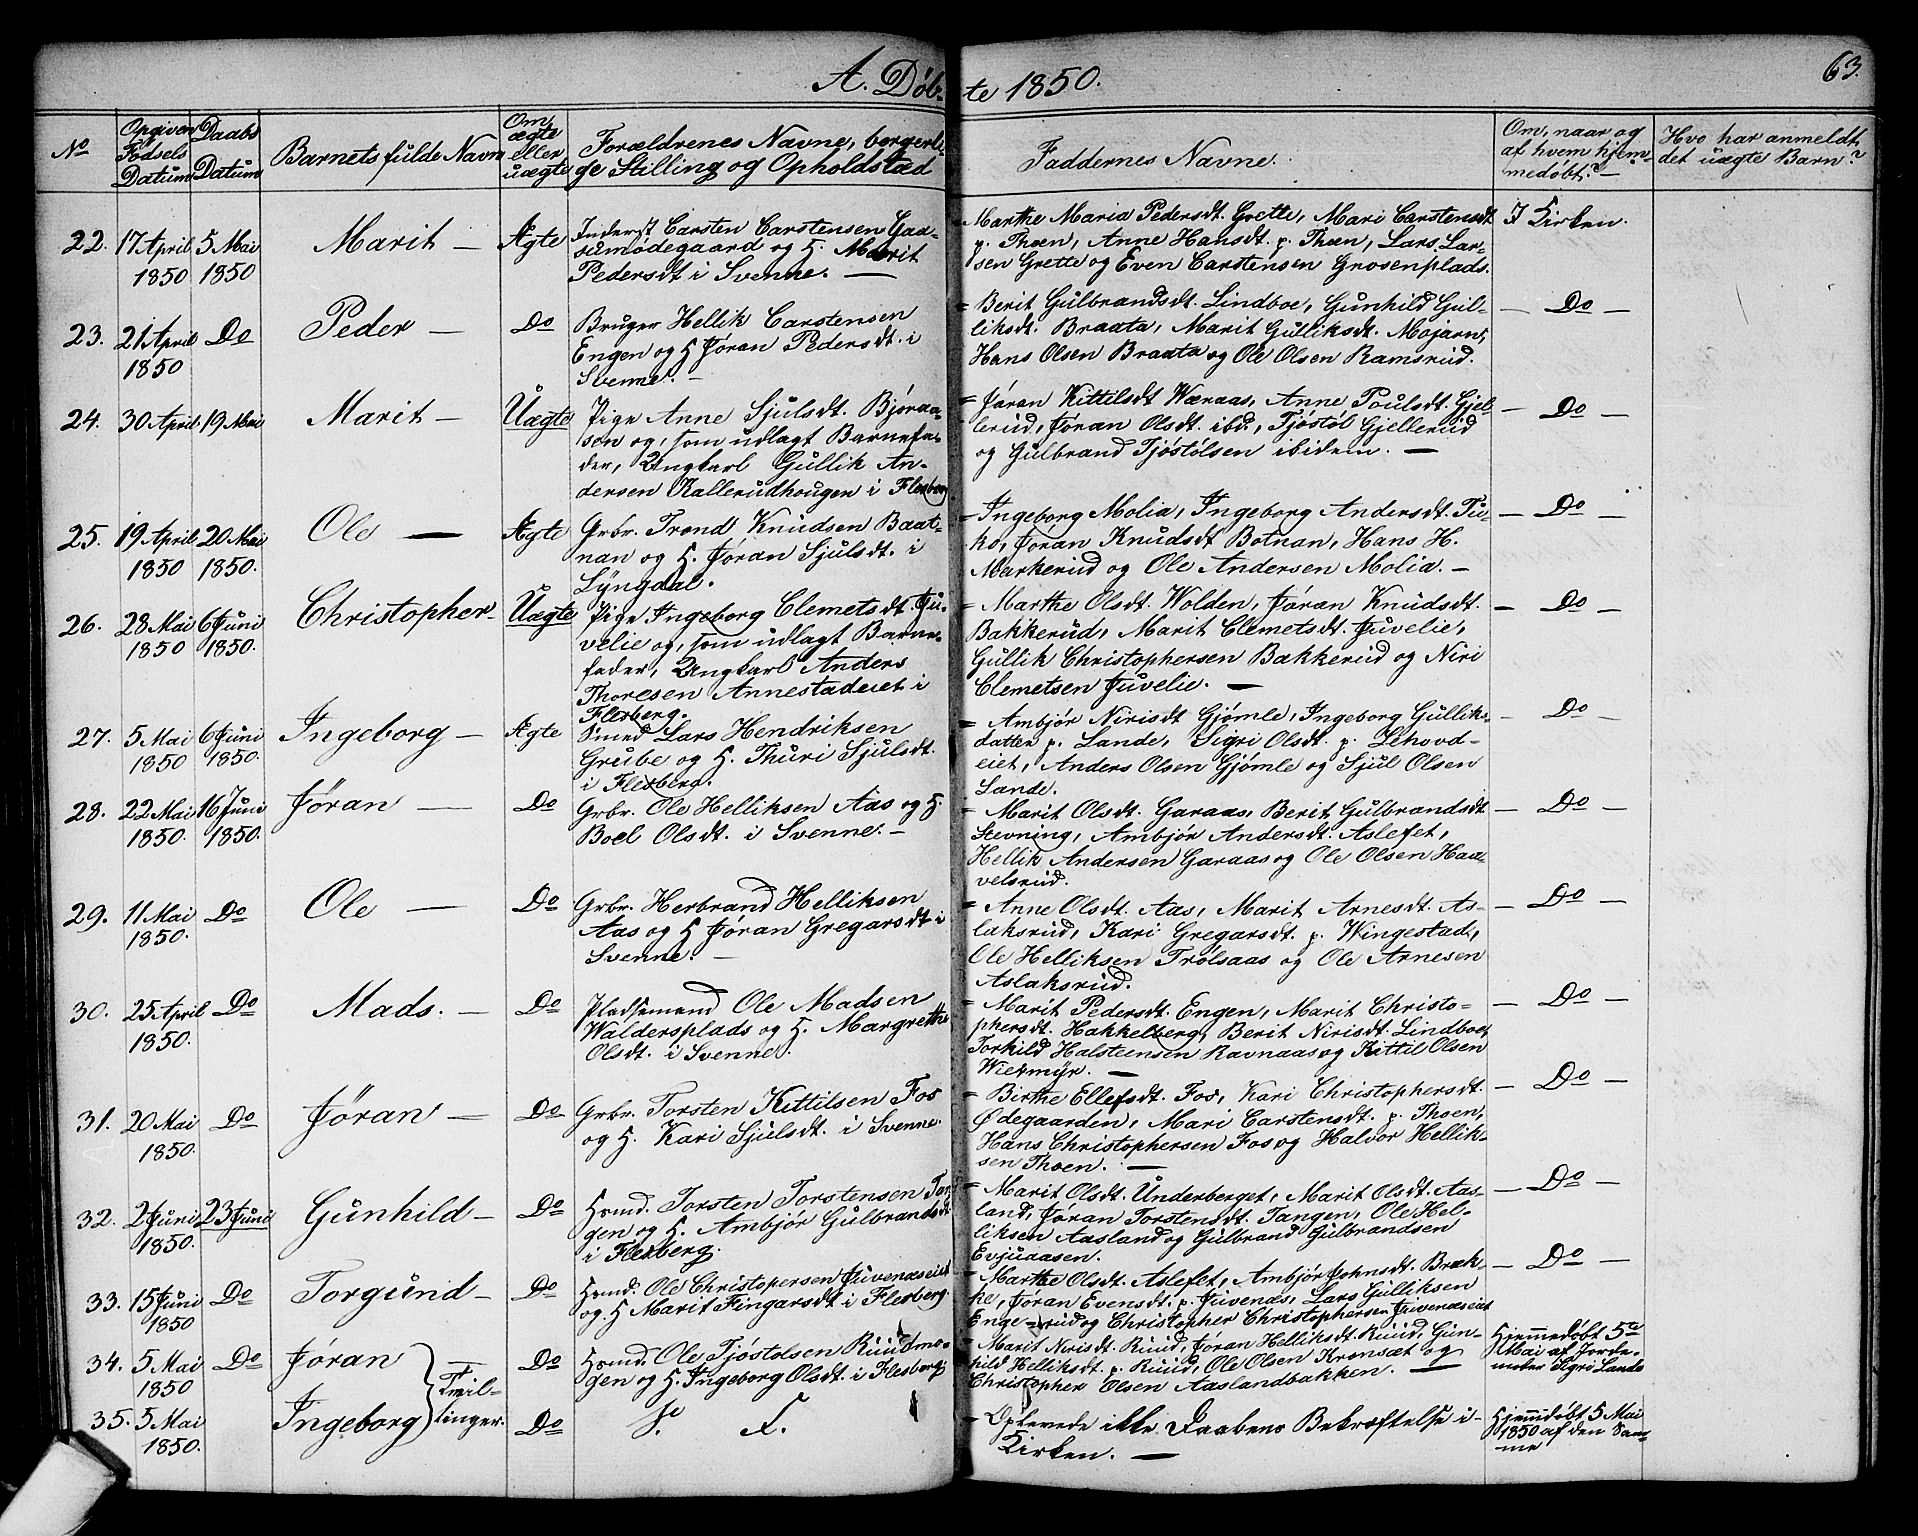 A. Døb-
te 1850.
63.
No
Opgiven Fødsels Datum
Daabs Datum
Barnets fulde Navn
Om ægte eller uægte
Forældrenes Navne, borgerli-
ge Stilling og Opholdsted
Faddernes Navne.
Om, naar og
af hvem hjem-
medøbt?
Hvo har anmeldt
det uægte Barn?
22. 17 April 1850 5 Mai 1850 Marit — Ægte
Inderst Carsten Carstensen Gaa-
sumødegaard og H. Marit
Pedersdt i Svenne. —
Marthe Maria Pedersdt. Grette, Mari Carstensdt
p. Thoen, Anne Hansdt. p. Thoen, Lars Lar-
sen Grette og Even Carstensen Grosenplads.
I Kirken.
23. 21 April 1850 Do Peder — Do
Bruger Hellik Carstensen
Engen og H Jøran Pedersdt. i
Svenne. —
= Berit Gulbrandsdt. Lindboe, Gunhild Gul-
liksdt. Braata, Marit Gulliksdt. Mojarn,
Hans Olsen Braata og Ole Olsen Ramsrud.
— Do —
24. 30 April 19 Mai Marit — Uægte
Pige Anne Sjulsdt. Bjøraa-
sen og, som udlagt Barnefa-
der, Ungkarl Gullik An-
dersen Kallerudhougen i Flesberg
= Jøran Kittilsdt Wæraas, Anne Poulsdt. Gjel-
lerud, Jøran Olsdt. ibd., Tjøstøl Gjellerud
og Gulbrand Tjøstolsen ibidem. —
— Do —
25. 19 April 1850 20 Mai 1850. Ole — Ægte
Grbr. Trond Knudsen Baat-
nan og H. Jøran Sjulsdt. i
Lyngdal.
= Ingeborg Molia, Ingeborg Andersdt. Tu-
ko, Jøran Knudsdt Botnan, Hans H.
Markerud og Ole Andersen Molia. —
— Do —
26. 28 Mai 1850 6 Juni 1850. Christopher- Uægte
Pige Ingeborg Clemetsdt. Ju-
velie og, som udlagt Barne-
fader, Ungkarl Anders
Thoresen Annestadeiet i
Flesberg.
= Marthe Olsdt. Wolden, Jøran Knudsdt.
Bakkerud, Marit Clemetsdt. Juvelie,
Gullik Christophersen Bakkerud og Niri
Clemetsen Juvelie. —
— Do —
27. 5 Mai 1850 6 Juni 1850. Ingeborg — Ægte
Smed Lars Hendriksen
Grube og H. Thuri Sjulsdt.
i Flesberg.
= Ambjør Nirisdt Gjømle, Ingeborg Gulliks-
datter p. Lande, Sigri Olsdt. p. Lehovd-
eiet, Anders Olsen Gjømle og Sjul Olsen
Lande.
— Do —
28. 22 Mai 1850. 16 Juni 1850. Jøran — Do
Grbr. Ole Helliksen Aas og H.
Boel Olsdt. i Svenne. —
= Marit Olsdt. Garaas, Berit Gulbrandsdt
Stevning, Ambjør Andersdt. Aslefet,
Hellik Andersen Garaas og Ole Olsen Haa-
velsrud.
— Do —
29. 11 Mai 1850. Do Ole — Do
Grbr. Herbrand Helliksen
Aas og H Jøran Gregarsdt i
Svenne. —
= Anne Olsdt. Aas, Marit Arnesdt. As-
laksrud, Kari Gregarsdt. p. Wingestad,
Ole Helliksen Trolsaas og Ole Arnesen
Aslaksrud.
— Do —
30. 25 April 1850. Do Mads. — Do
Pladsemand Ole Madsen
Waldersplads og H. Margrethe
Olsdt. i Svenne.
= Marit Pedersdt. Engen, Marit Christo-
phersdt. Hakkelberg, Berit Nirisdt. Lindboe,
Torkild Halsteensen Ravnaas og Kittil Olsen
Wiermyr. —
— Do —
31. 20 Mai 1850. Do Jøran — Do
Grbr. Torsten Kittilsen Fos
og H. Kari Sjulsdt. i Svenne.
= Birthe Ellefsdt. Fos, Kari Christophersdt.
Ødegaarden, Mari Carstensdt. p. Thoen,
Hans Christophersen Fos og Halvor Hellik-
sen Thoen. —
— Do —
32. 2 Juni 1850. 23 Juni Gunhild — Do
Hsmd. Torsten Torstensen Tan-
gen og H. Ambjør Gulbrandsdt
i Flesberg.
= Marit Olsdt. Underberget, Marit Olsdt. Aas-
land, Jøran Torstensdt. Tangen, Ole Hel-
liksen Aasland og Gulbrand Gulbrandsen
Evjuaasen.
— Do —
33. 15 Juni 1850 Do Torgund — Do
Hsmd. Ole Christopersen Juvenæseiet
og H Marit Fingarsdt i Flesberg.
= Marthe Olsdt. Aslefet, Ambjør Johnsdt. Bræk-
ke, Jøran Evensdt. p. Juvenæs, Lars Gulliksen
Enge=rud og Christopher Christophersen Juvenæseiet
— Do —
34. 5 Mai 1850 Do Jøran — Tvil-
linger. Do
Hsmd. Ole Tjøstolsen Ruudmo-
gen og H. Ingeborg Olsdt. i Flesberg
= Marit Nirisdt. Ruud, Jøran Helliksdt. Ruud, Gun-
hild Helliksdt. p. Ruud, Ole Olsen Kronsæt og
Christopher Olsen Aaslandbakken. —
Hjemmedøbt 5te
Mai af Jorde-
moder Sigri Lande
35. 5 Mai 1850. Ingeborg Do
S. F.
= Oplevede ikke Daabens Bekræftelse i
Kirken. —
Hjemmdøbt 5 Mai
1850 af den Sam-
me